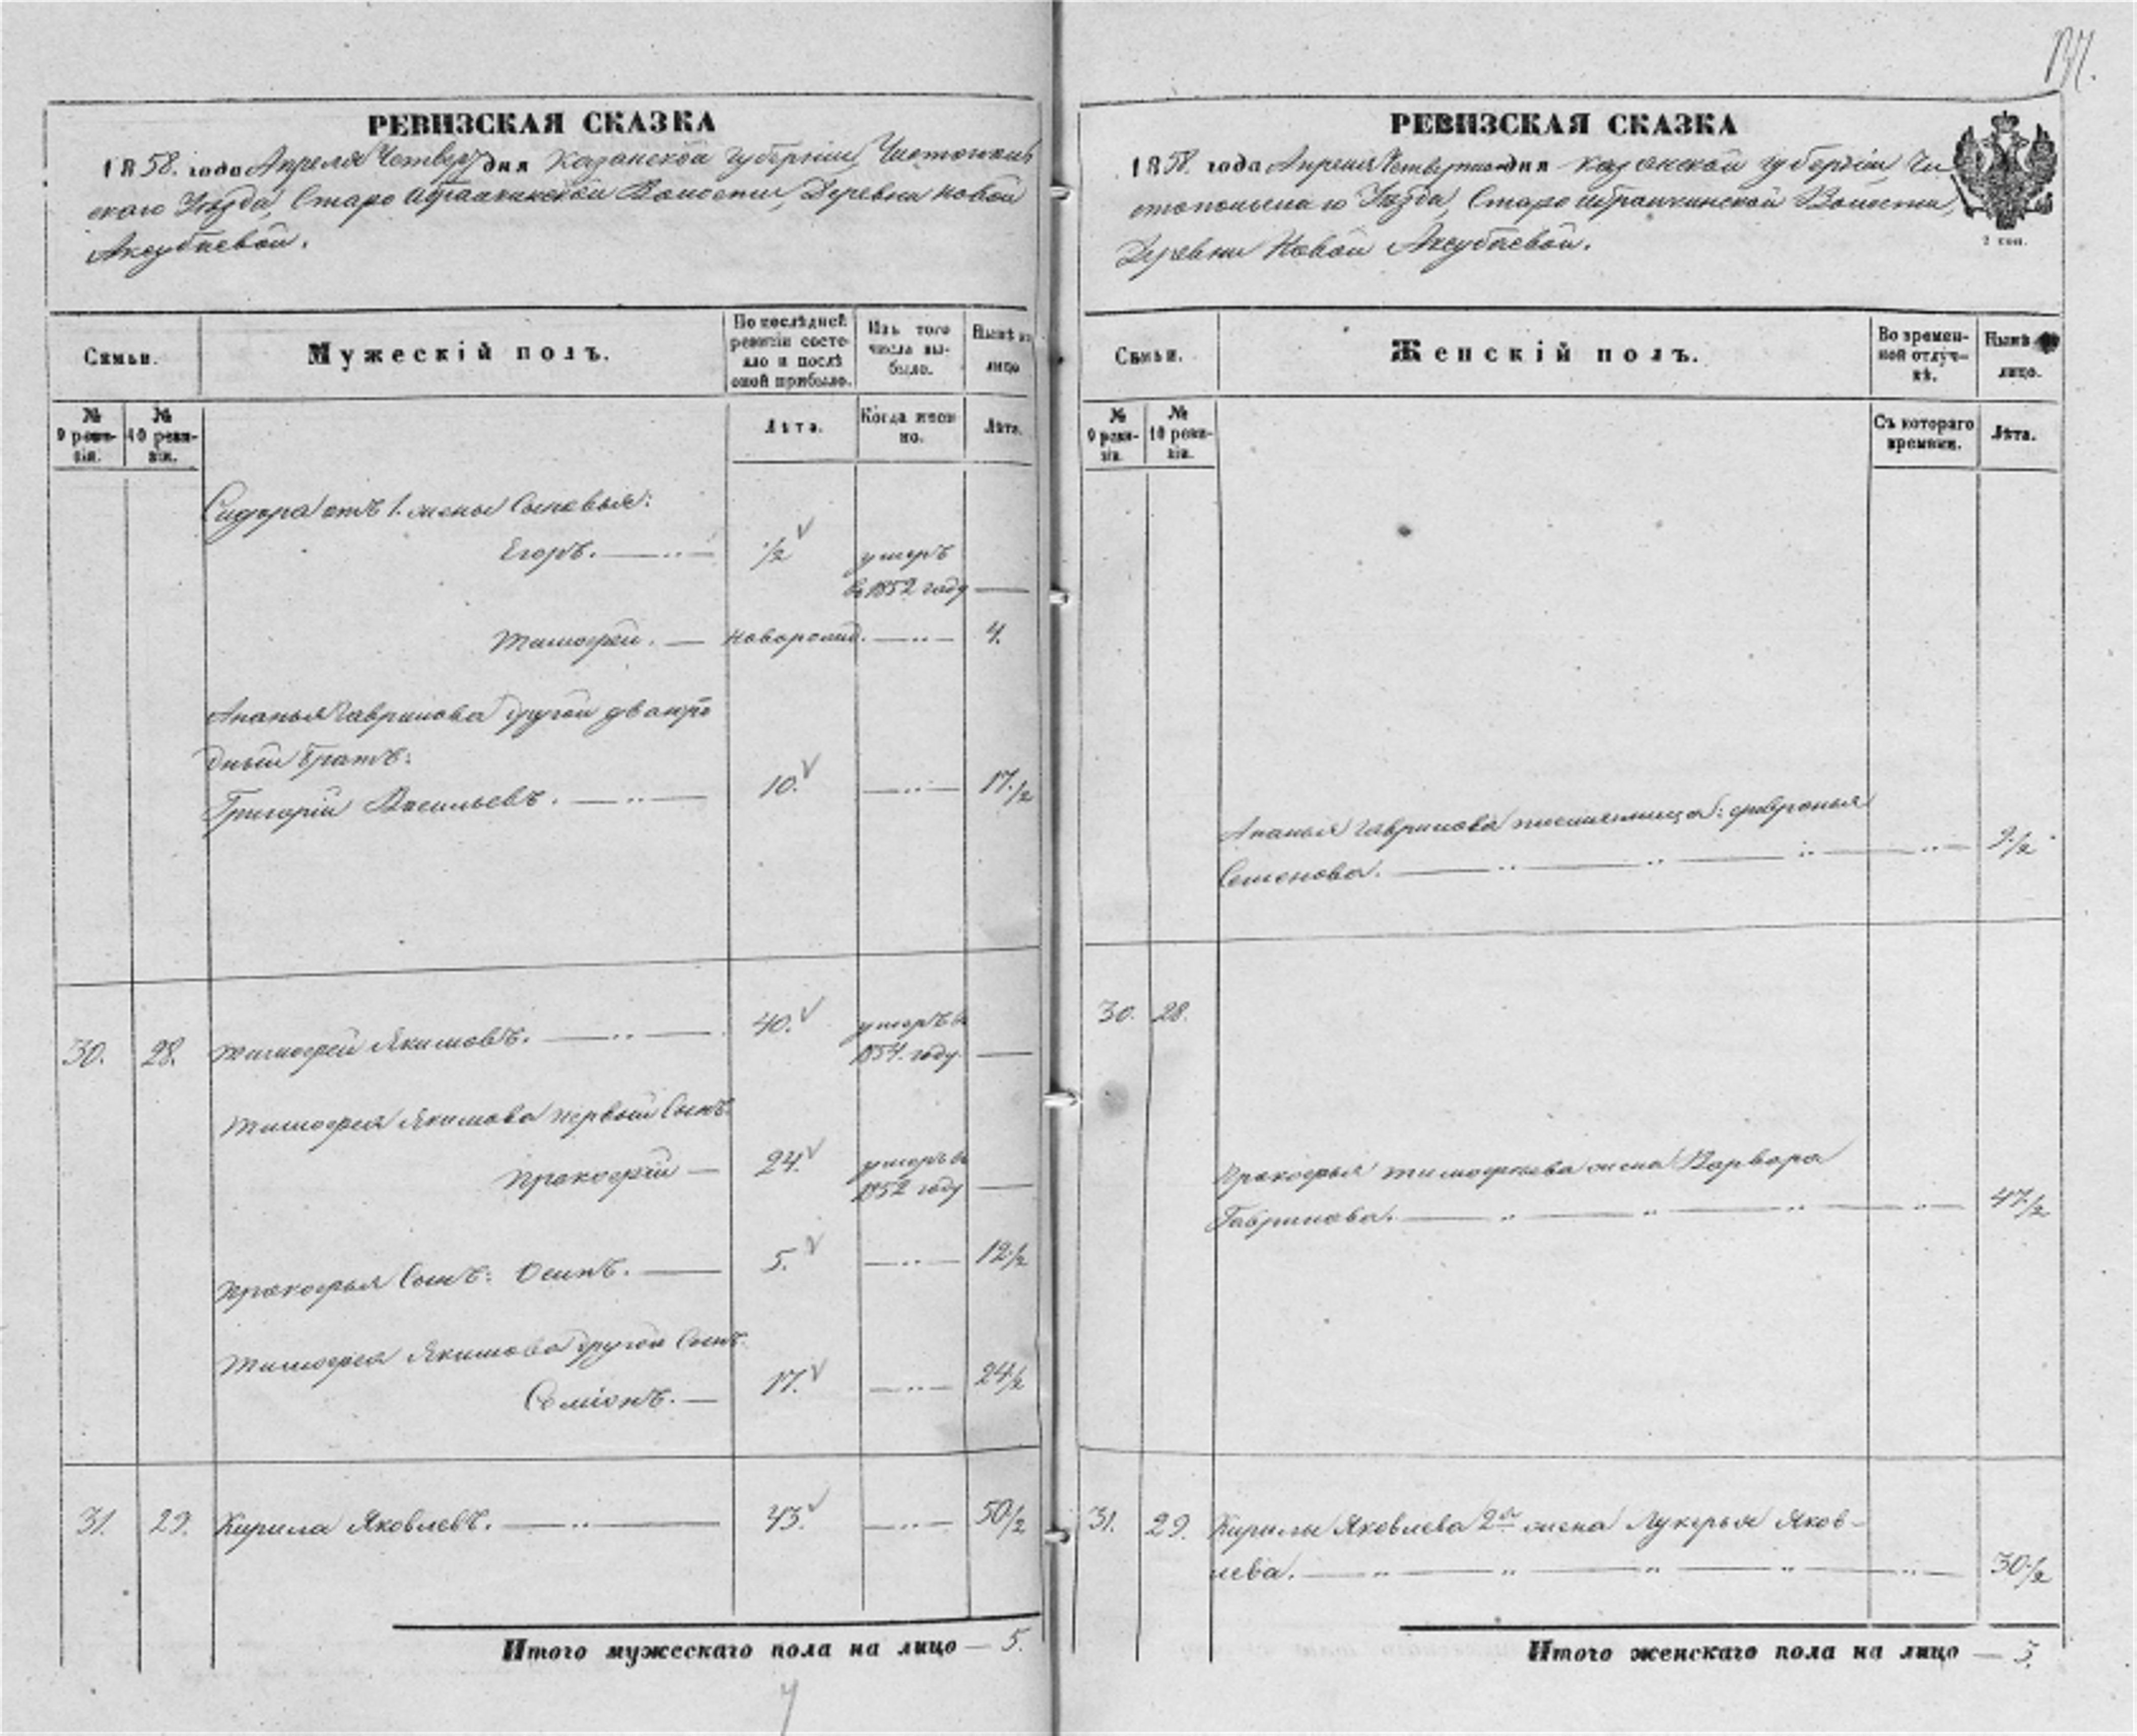 РЕВИЗСКАЯ СКАЗКА
1858. года Апреля Четвер дня Казанской губернiи, Чистополь
скаго Уѣзда, Старо Волости, Деревни Новой
Аксубаевой.
Семьи.
Мужескiй полъ.
По послѣдней ревизiи состояло и послѣ оной прибыло.
Изъ того числа выбыло.
Нынѣ на лицо
№ 9 ревизiи.
№ 10 ревизiи.
Лѣта.
Когда именно.
Лѣта.
Сидора отъ 1. жены Сыновья:
Егоръ. 1/2 умеръ
въ 1852 году
Тимофей. новорожд. 4.
Ананья Гаврилова другой двоюро
дный братъ:
Григорiй Васильевъ. 10. 17 1/2
30. 28. Тимофей Якимовъ. 40. умеръ въ
1854. году
Тимофея Якимова первый Сынъ
Прокофiй 24. умеръ въ
1852 году
Прокофья Сынъ: Осипъ. 5. 12 1/2
Тимофея Якимова другой Сынъ.
Семiонъ. 17. 24 1/2
31. 29. Кирила Яковлевъ. 43. 50 1/2
Итого мужескаго пола на лицо — 5.
РЕВИЗСКАЯ СКАЗКА
1858. года Апреля дня Казанской губернiи Чи
стопольскаго Уѣзда, Старо Волости,
Деревни Новой Аксубаевой.
Семьи.
Женскiй полъ.
Во временной отлучкѣ.
Нынѣ лицо.
№ 9 ревизiи.
№ 10 ревизiи.
Съ котораго времени.
Лѣта.
Ананья Гаврилова племянница: Февронья
Семенова. 9 1/2
30. 28.
Прокофья Тимофеева жена Варвара
Гаврилова. 47 1/2
31. 29. Кирилы Яковлева 2я жена Лукерья Яков-
лева. 30 1/2
Итого женскаго пола на лицо — 3.